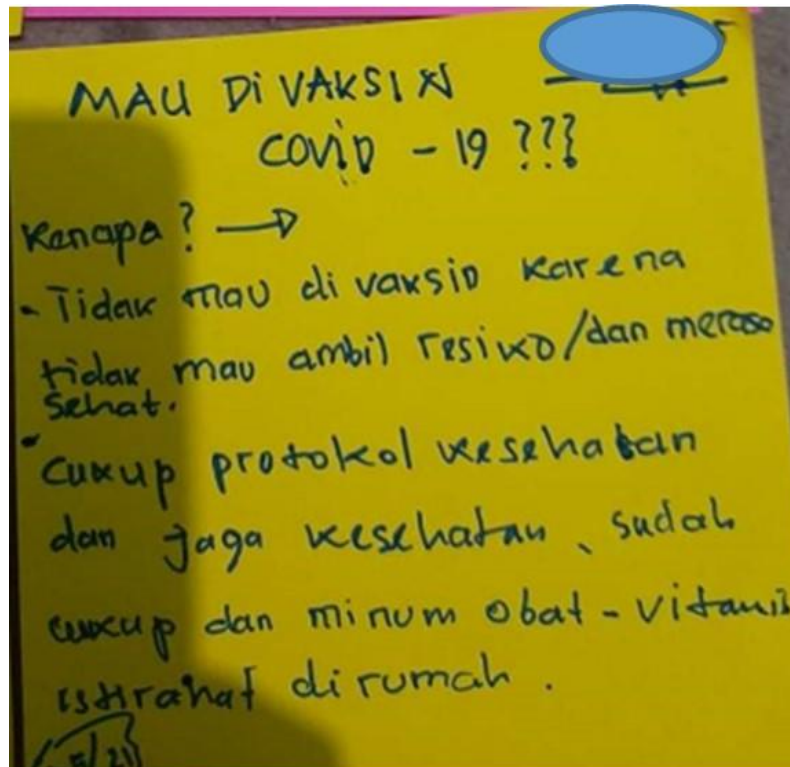 MAU DI VAKSIN
COVID - 19 ???
Kenapa? →
- Tidak mau di vaksin karena
tidak mau ambil resiko/dan merasa
sehat.
• cukup protokol kesehatan
dan jaga kesehatan, sudah
cukup dan minum obat - vitamin
istirahat di rumah.
5/21